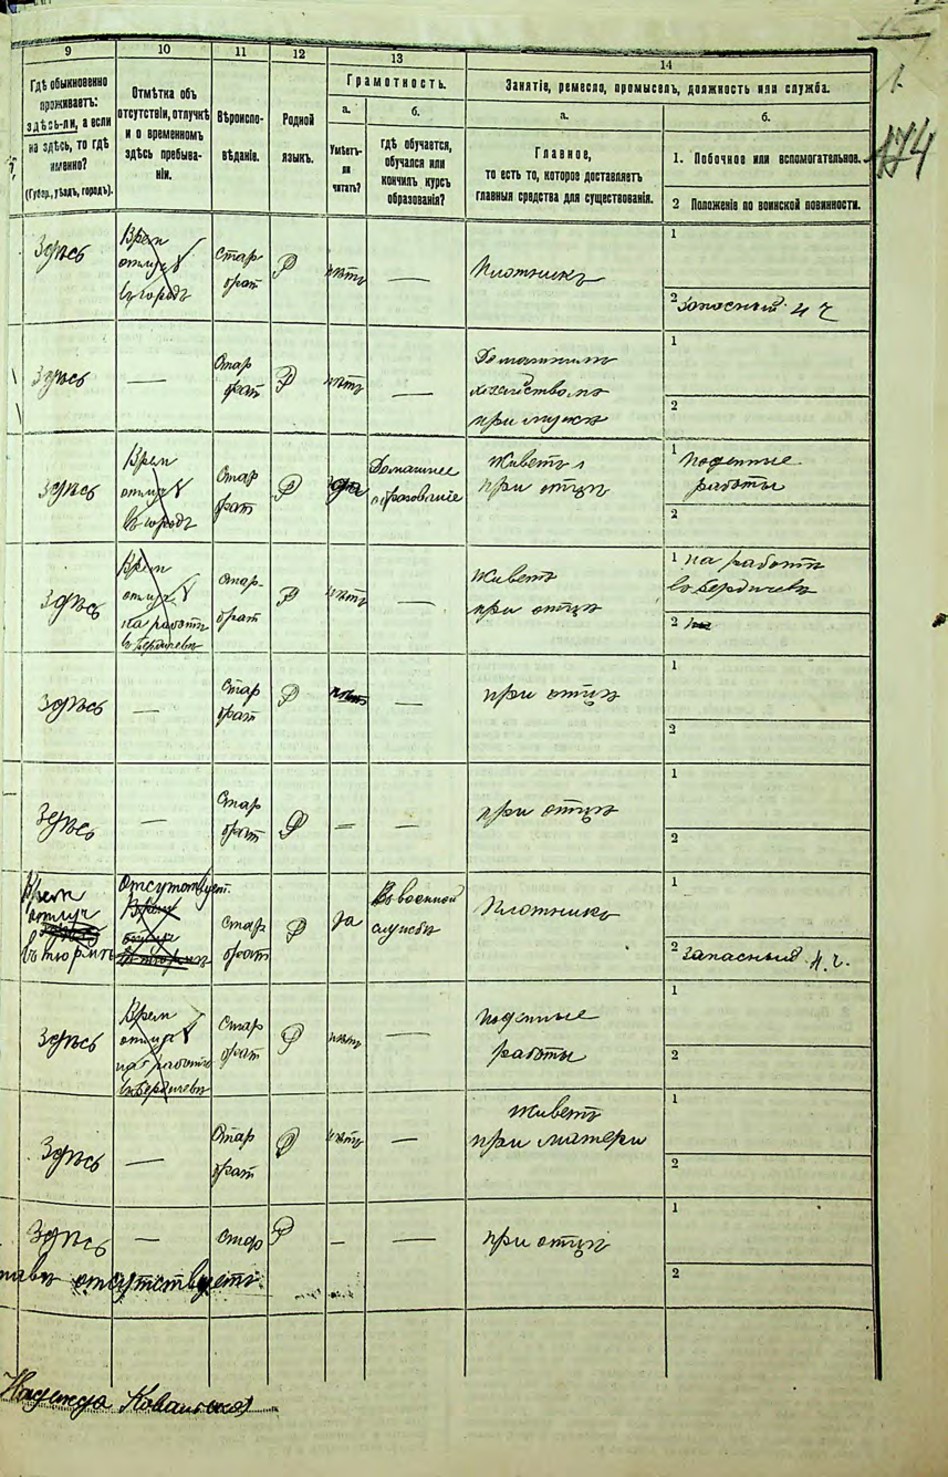 174
9
10
11
12
13
14
Гдѣ обыкновенно
проживаетъ:
здѣсь-ли, а если
не здѣсь, то гдѣ
именно?
(Губер., уѣздъ, городъ).
Отмѣтка объ
отсутствіи, отлучкѣ
и о временномъ
здѣсь пребыва-
ніи.
Вѣроиспо-
вѣданіе.
Родной
языкъ.
Грамотность.
а.
Умѣетъ-
ли
читать?
б.
гдѣ обучается,
обучался или
кончилъ курсъ
образованія?
Занятіе, ремесло, промыселъ, должность или служба.
а.
Главное,
то есть то, которое доставляетъ
главныя средства для существованія.
б.
1. Побочное или вспомогательное.
2 Положеніе по воинской повинности.
Здѣсь
Врем
отлуч
въ городѣ
Стар
обрат
Р
нѣтъ
—
Плотникъ
1
2 Запасный н ч
Здѣсь
—
Стар
обрат
Р
нѣтъ
—
Домашнимъ
хозяйствомъ
при мужѣ
1
2
Здѣсь
Врем
отлуч
въ городѣ
Стар
обрат
Р
да
Домашнее
образованіе
Живетъ
при отцѣ
1 поденные
работы
2
Здѣсь
Врем
отлуч
на работѣ
въ Бердичевѣ
Стар
обрат
Р
нѣтъ
—
живетъ
при отцѣ
1 на работѣ
въ Бердичевѣ
2
Здѣсь
—
Стар
обрат
Р
нѣтъ
—
при отцѣ
1
2
Здѣсь
—
Стар
обрат
Р
—
—
при отцѣ
1
2
Врем
отлуч
здѣсь
въ тюрьмѣ
Отсутствует.
Врем
отлуч
въ тюрьмѣ
Стар
обрат
Р
да
Въ военной
службѣ
Плотникъ
1
2 запасный н.ч.
Здѣсь
Врем
отлуч
на работѣ
въ Бердичевѣ
Стар
обрат
Р
нѣтъ
—
поденные
работы
1
2
Здѣсь
—
Стар
обрат
Р
нѣтъ
—
живетъ
при матери
1
2
Здѣсь
—
Стар
Р
—
—
при отцѣ
1
2
отсутствуетъ.
Надежда Ковальская